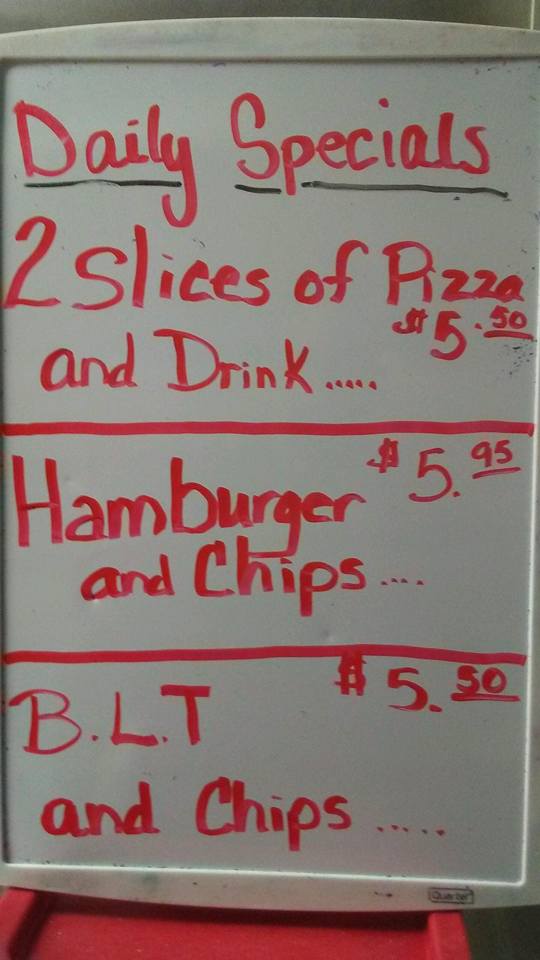 Daily Specials
2 Slices of Pizza
$5.50
and Drink.....
Hamburger $5.95
and Chips....
B.L.T $5.50
and Chips.....
Quartet